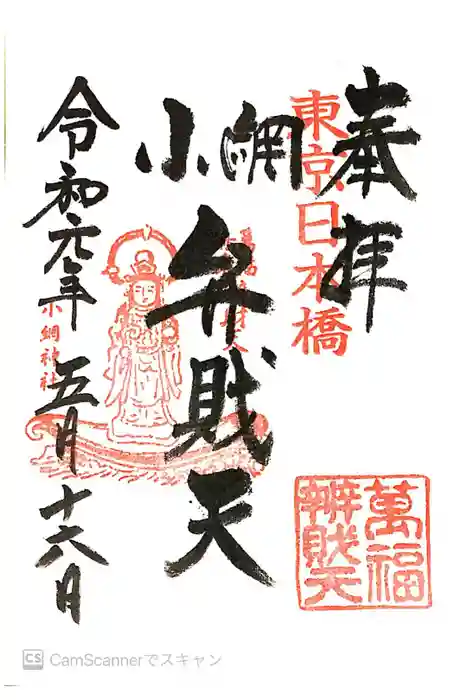 奉拝
東京日本橋
小網
弁財天
令和元年
五月
十六日
小網神社
萬福
辨財天
CS CamScannerでスキャン